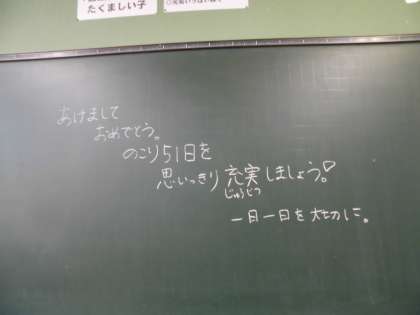 たくましい子
あけまして
おめでとう。
のこり51日を
思いっきり充実しましょう!
じゅうじつ
一日一日を大切に。